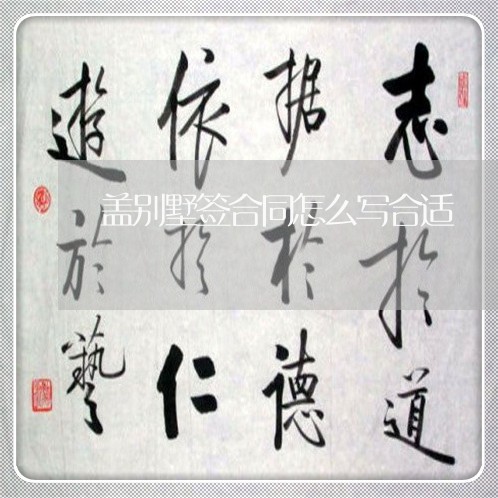 志於道
据於德
依於仁
遊於藝
盖别墅签合同怎么写合适